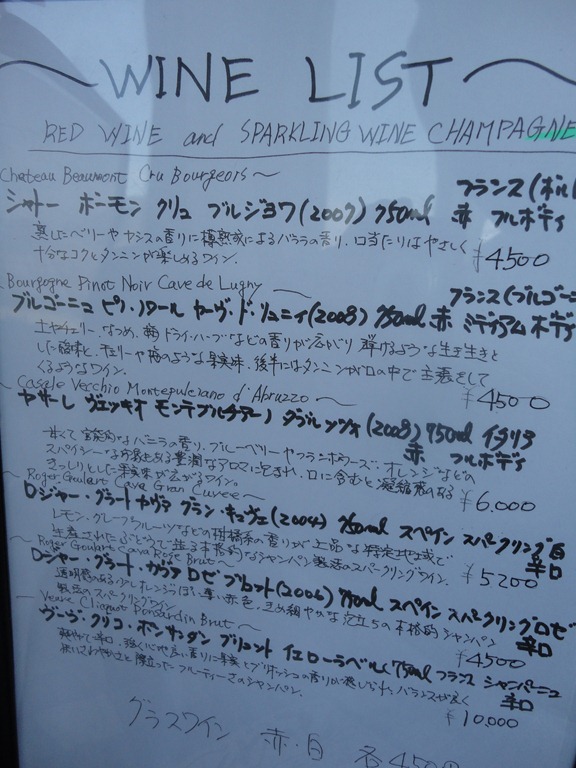 ~WINE LIST~
RED WINE and SPARKLING WINE CHAMPAGNE
Chateau Beaumont Cru Bourgeois~
フランス(ボル
シャトー ボーモン クリュ ブルジョワ(2007) 750ml 赤 フルボディ
熟したベリーやカシスの香りに樽熟成によるバニラの香り、口当たりはやさしく
十分なコクとタンニンが楽しめるワイン。 ¥4500
Bourgogne Pinot Noir Cave de Lugny~
フランス(ブルゴーニ
ブルゴーニュ ピノ・ノワール カーヴ・ド・リュニィ(2008) 750ml 赤 ミディアムボディ
土やチェリー、なつめ、ドライハーブなどの香りが広がり 弾けるような生き生きと
した酸味と、チェリーや梅のような果実味、後半にはタンニンが口の中で主張をして
くるようなワイン。 ¥4500
~Casale Vecchio Montepulciano d'Abruzzo~
カサーレ ヴェッキオ モンテプルチアーノ ダブルッツォ(2008) 750ml イタリア
赤 フルボディ
甘くて官能的なバニラの香り、ブルーベリーやフランボワーズ・オレンジなどの
スパイシーな芳香ある豊潤なアロマに包まれ、口に含むと凝縮感のある
きっしりとした果実味が広がるワイン。 ¥6.000
~Roger Goulart Cava Gran Cuvee~
ロジャー・グラート カヴァ グラン・キュヴェ(2004) 750ml スペイン スパークリング白
辛口
レモン、グレープフルーツなどの柑橘系の香りが上品な 特定地域で
生産されたぶどうで造る本格的なシャンパン製法のスパークリングワイン。 ¥5200
~Roger Goulart Cava Rosé Brut~
ロジャー・グラート カヴァ ロゼ ブリュット(2006) 750ml スペイン スパークリングロゼ
辛口
透明感のある少しオレンジっぽい薄い赤色、きめ細やかな泡立ちの本格的シャンパン
製法のスパークリングワイン ¥4500
~Veuve Clicquot Ponsardin Brut~
ヴーヴ・クリコ・ポンサルダン ブリュット イエローラベル 750ml フランス シャンパーニュ
辛口
軽やかで辛口、強く心地良い香りに果実とブリオッシュの香りが感じられ、バランスが良く
快いさわやかさと際立ったフルーティーさのシャンパン。 ¥10,000
グラスワイン 赤・白 各450円